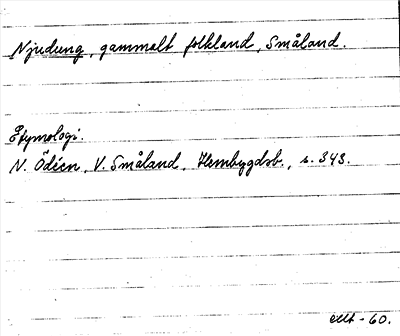 Njudung, gammalt folkland, Småland.
Etymologi.
N. Ödéen, V. Småland, Hembygdsb., s. 343.
- 60.